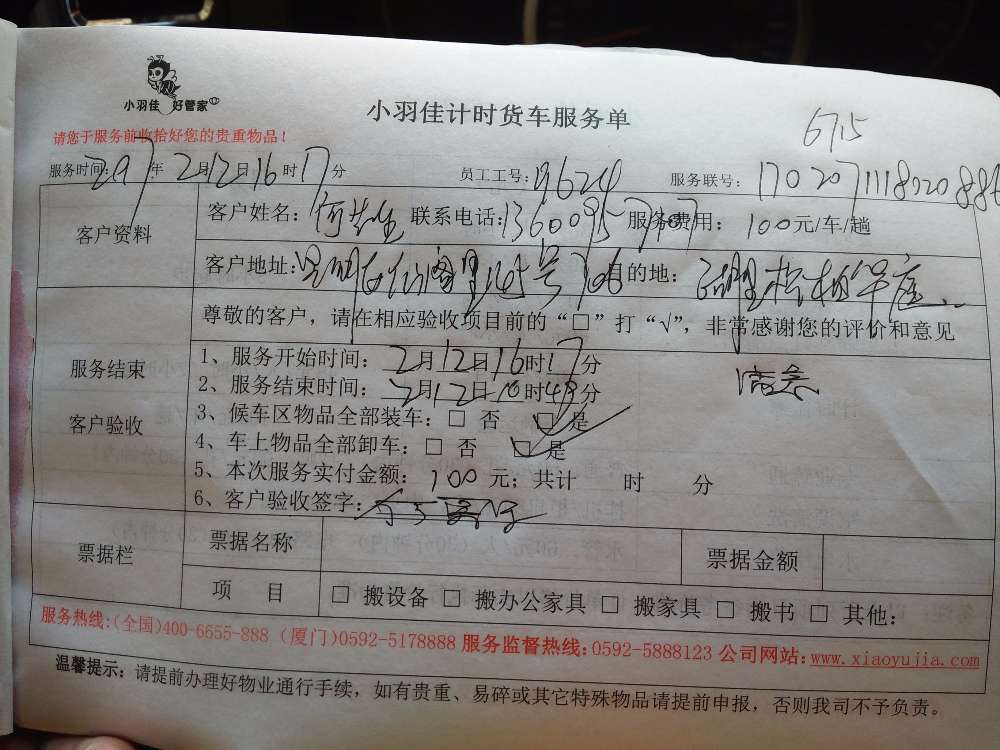 小羽佳 好管家
小羽佳计时货车服务单
6715
请您于服务前收拾好您的贵重物品！
服务时间：2017年2月12日16时17分 员工工号：19624 服务联号：
客户资料
客户姓名：何先生 联系电话：服务费用：100元/车/趟
客户地址：目的地：松柏华庭
尊敬的客户，请在相应验收项目前的“□”打“√”，非常感谢您的评价和意见
服务结束
客户验收
1、服务开始时间：2月12日16时17分
2、服务结束时间：2月12日 时49分
3、候车区物品全部装车：□ 否 □ 是
4、车上物品全部卸车：□ 否 □ 是
5、本次服务实付金额：100元；共计 时 分
6、客户验收签字：
票据栏
票据名称 票据金额
项 目 □ 搬设备 □ 搬办公家具 □ 搬家具 □ 搬书 □ 其他：
服务热线：(全国)400-6655-888 (厦门)0592-5178888 服务监督热线：0592-5888123 公司网站：www.xiaoyujia.com
温馨提示：请提前办理好物业通行手续，如有贵重、易碎或其它特殊物品请提前申报，否则我司不予负责。